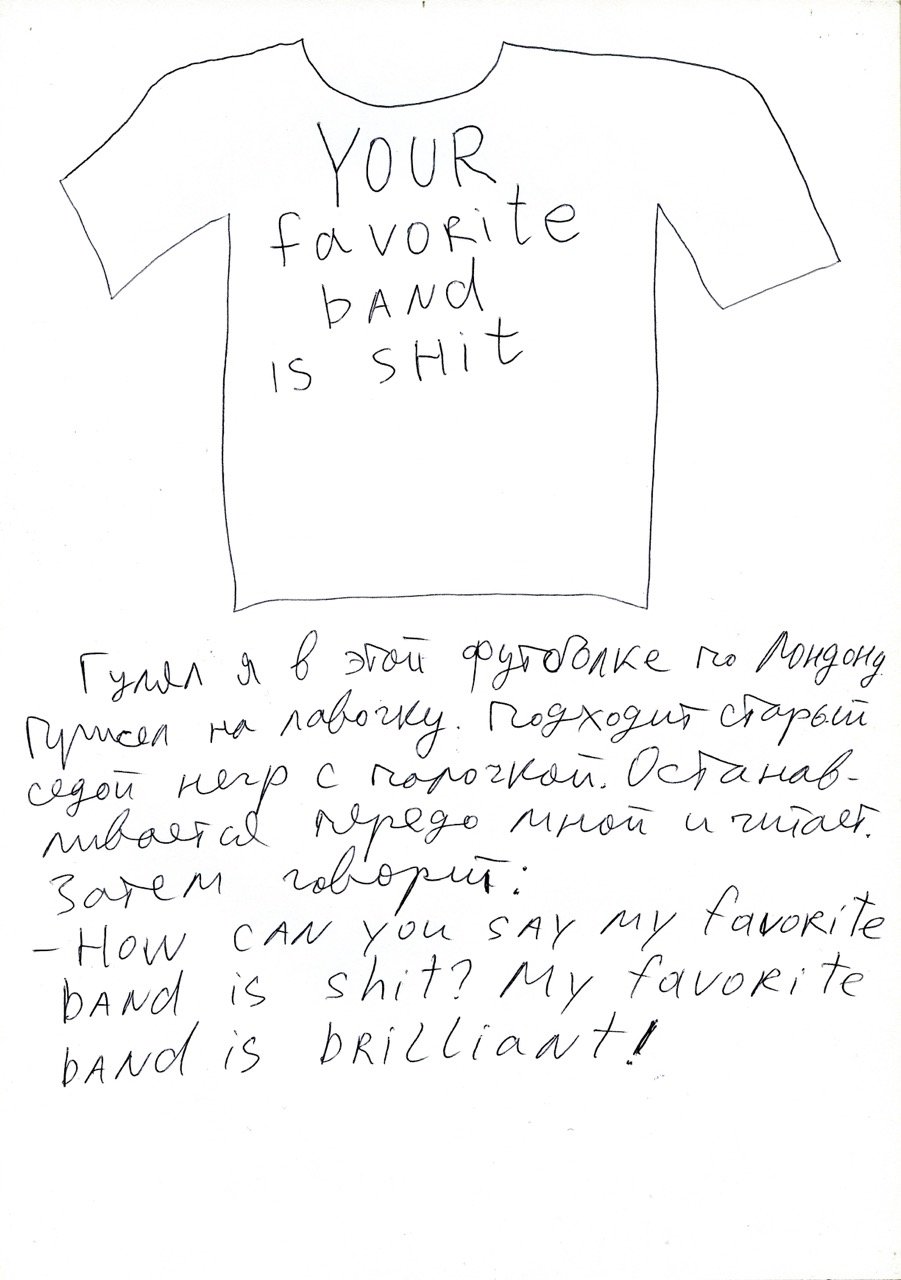 YOUR
favorite
band
is shit
Гулял я в этой футболке по Лондону.
Присел на лавочку. Подходит старый
седой негр с палочкой. Останав-
ливается передо мной и читает.
Затем говорит:
- How can you say my favorite
band is shit? My favorite
band is brilliant!